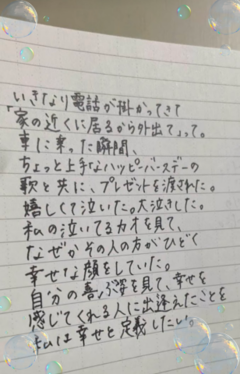 いきなり電話が掛かってきて
「家の近くに居るから外出て」って。
車に乗った瞬間、
ちょっと上手なハッピーバースデーの
歌と共に、プレゼントを渡された。
嬉しくて泣いた。大泣きした。
私の泣いてるカオを見て、
なぜかその人の方がひどく
幸せな顔をしていた。
自分の喜ぶ姿を見て、幸せを
感じてくれる人に出逢えたことを
私は幸せと定義したい。